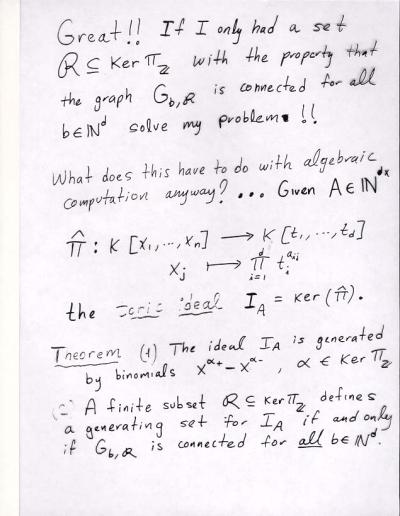 Great!! If I only had a set
R ⊆ Ker π_ℤ with the property that
the graph G_{b,R} is connected for all
b ∈ ℕ^d solve my problem !!
What does this have to do with algebraic
computation anyway? ... Given A ∈ ℕ^{dx
π̂ : K [x_1,...,x_n] → K [t_1,...,t_d]
x_j ↦ ∏_{i=1}^{d} t_i^{a_{ij}}
the toric ideal I_A = ker (π̂).
Theorem (1) The ideal I_A is generated
by binomials x^{α+} - x^{α-}, α ∈ Ker π_ℤ
(2) A finite subset R ⊆ Ker π_ℤ defines
a generating set for I_A if and only
if G_{b,R} is connected for all b ∈ ℕ^d.